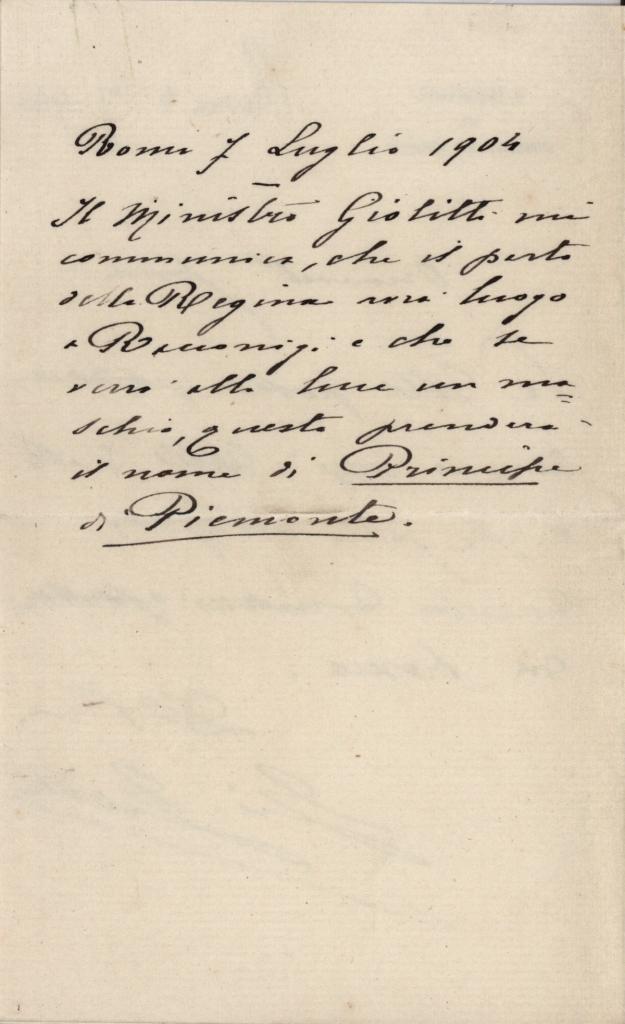 Roma 7 Luglio 1904
Il Ministro Giolitti mi
communica, che il parto
della Regina avrà luogo
a Racconigi e che se
verrà alla luce un ma=
schio, questo prenderà
il nome di Principe
di Piemonte.